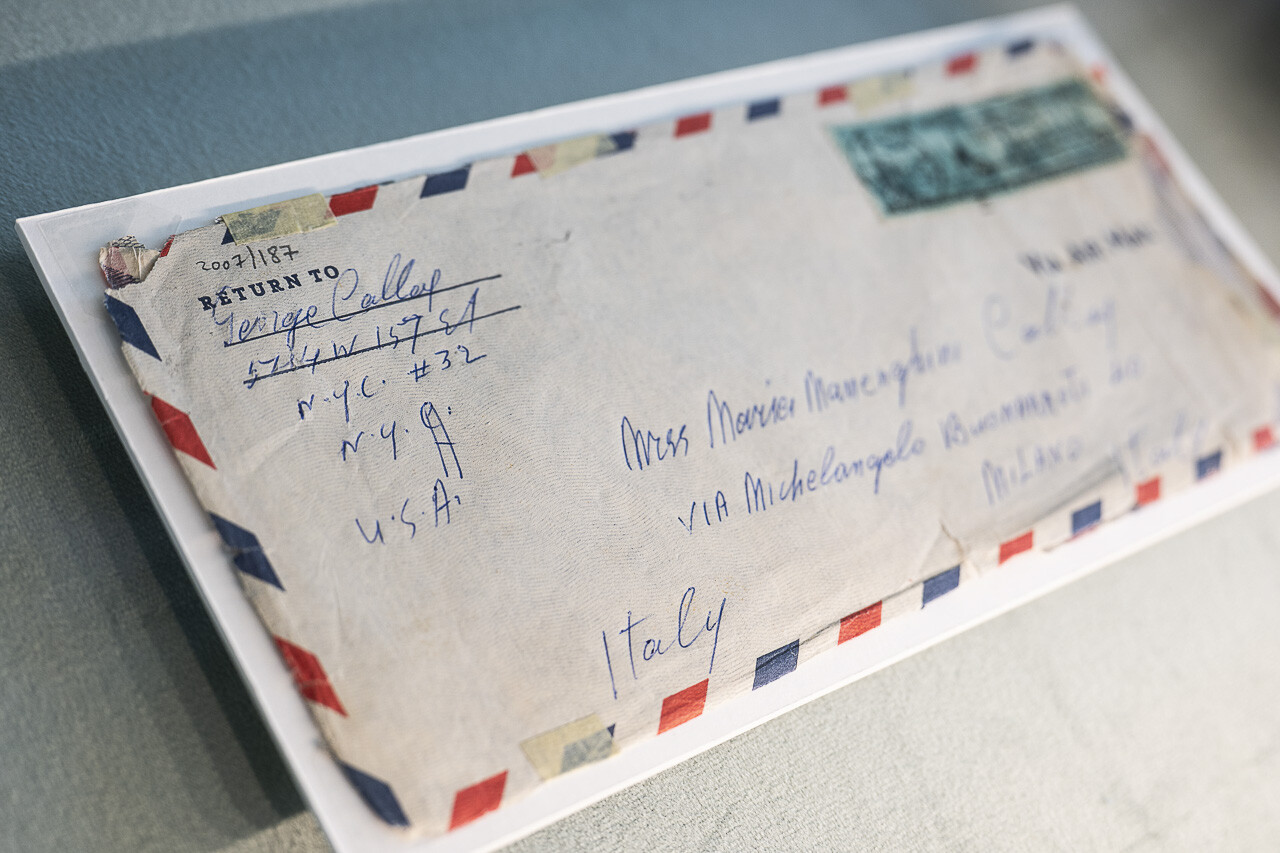 2007/187
RETURN TO
George Callas
W 157 St
N.Y.C. #32
N.Y.
U.S.A.
VIA AIR MAIL
Miss Maria Meneghini Callas
VIA Michelangelo Buonarroti
MiLANO Italy
Italy